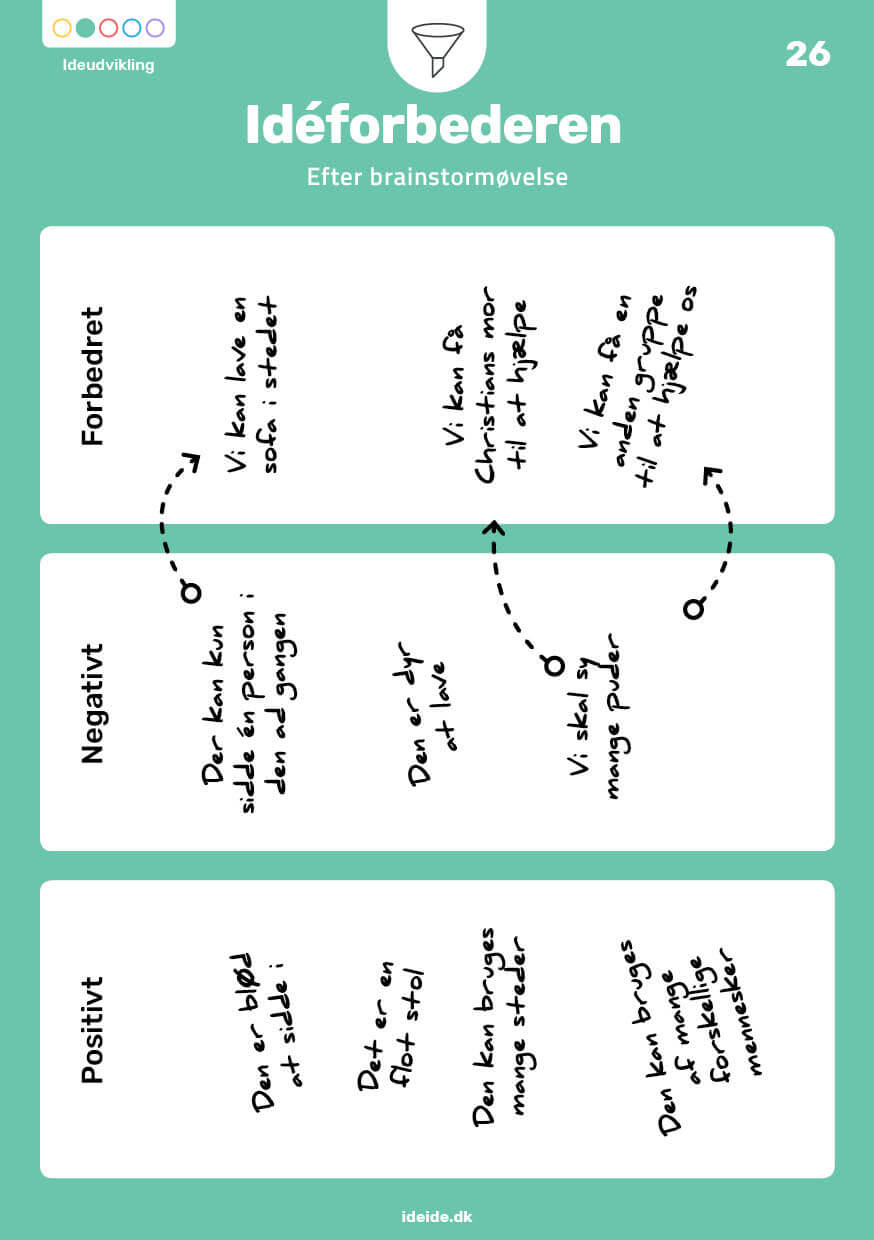 Ideudvikling
26
Idéforbederen
Efter brainstormøvelse
Forbedret
Vi kan lave en
sofa i stedet
Vi kan få
Christians mor
til at hjælpe
Vi kan få en
anden gruppe
til at hjælpe os
Negativt
Der kan kun
sidde én person i
den ad gangen
Den er dyr
at lave
Vi skal sy
mange puder
Positivt
Den er blød
at sidde i
Det er en
flot stol
Den kan bruges
mange steder
Den kan bruges
af mange
forskellige
mennesker
ideide.dk